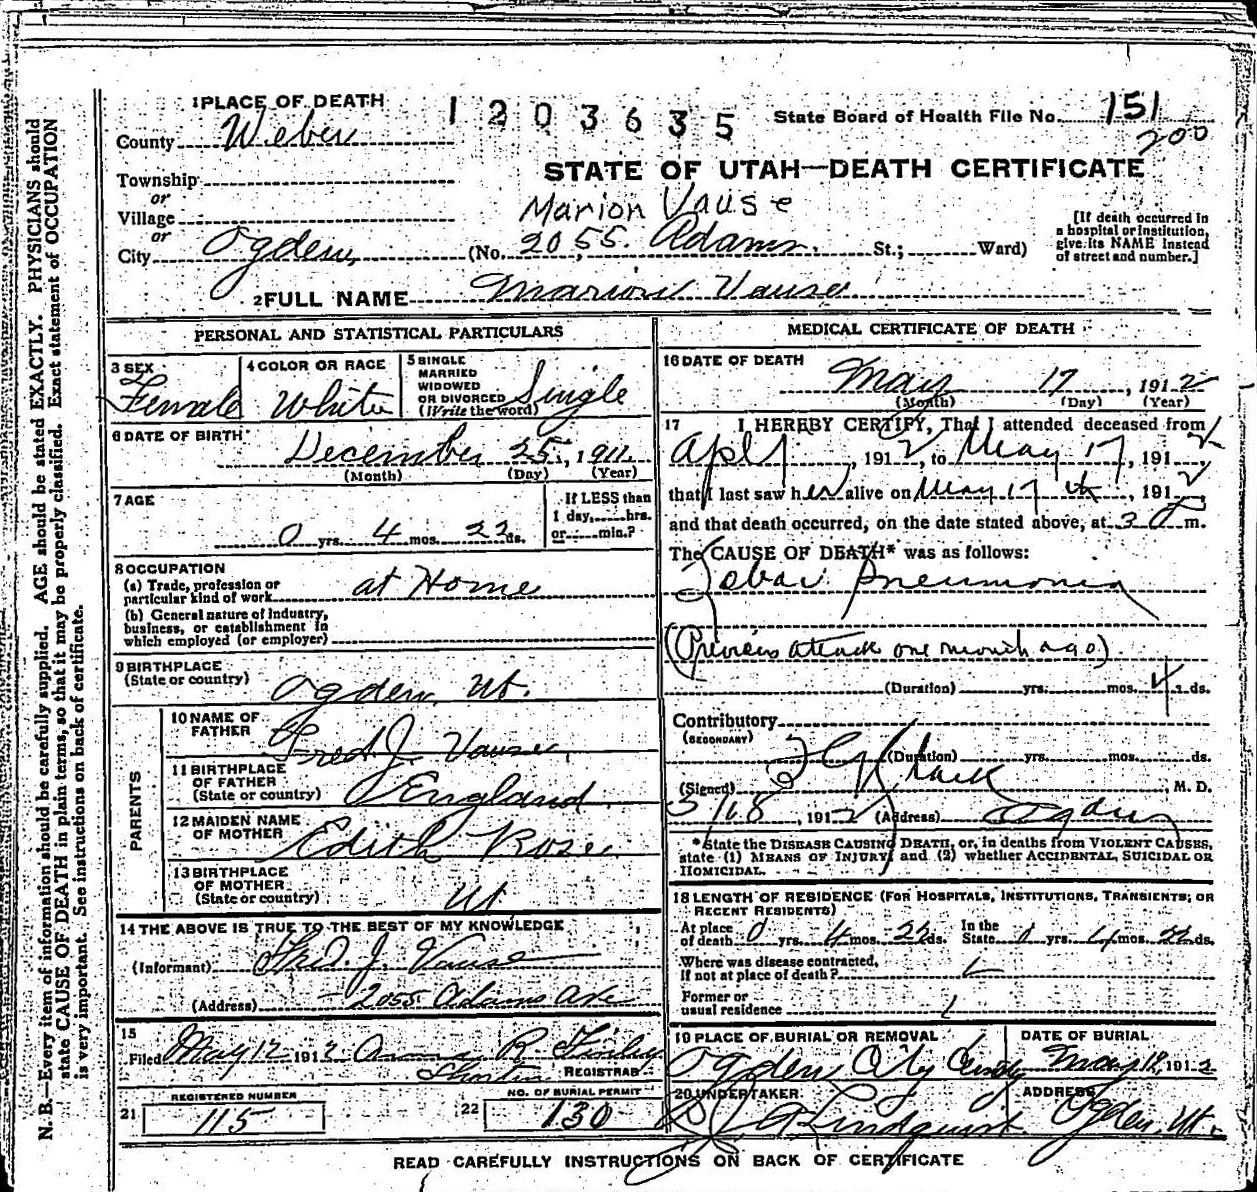 1 PLACE OF DEATH
1203635
State Board of Health File No. 151
200
County Weber
STATE OF UTAH—DEATH CERTIFICATE
Township
or
Village
or
Marion Vause
City Ogden, (No. 2055. Adams. St.; Ward)
[If death occurred in
a hospital or institution,
give its NAME instead
of street and number.]
2 FULL NAME Marion Vause
PERSONAL AND STATISTICAL PARTICULARS
3 SEX
Female
4 COLOR OR RACE
White
5 SINGLE
MARRIED
WIDOWED
OR DIVORCED
(Write the word)
Single
6 DATE OF BIRTH
December 25, 1911
(Month) (Day) (Year)
7 AGE
0 yrs. 4 mos. 22 ds.
If LESS than
1 day,......hrs.
or......min.?
8 OCCUPATION
(a) Trade, profession or
particular kind of work
at Home
(b) General nature of industry,
business, or establishment in
which employed (or employer)
9 BIRTHPLACE
(State or country)
Ogden, Ut.
PARENTS
10 NAME OF
FATHER
Fred J. Vause,
11 BIRTHPLACE
OF FATHER
(State or country)
England.
12 MAIDEN NAME
OF MOTHER
Edith Rose
13 BIRTHPLACE
OF MOTHER
(State or country)
Ut
14 THE ABOVE IS TRUE TO THE BEST OF MY KNOWLEDGE
(Informant) J. Vause
(Address) 2055 Adams Ave
15
Filed May 1912 Anna R. Finley
REGISTRAR
21
REGISTERED NUMBER
115
22
NO. OF BURIAL PERMIT
130
MEDICAL CERTIFICATE OF DEATH
16 DATE OF DEATH
May 17, 1912
(Month) (Day) (Year)
17 I HEREBY CERTIFY, That I attended deceased from
Apl, 1912, to May 17, 1912,
that I last saw her alive on May 17th, 1912,
and that death occurred, on the date stated above, at m.
The CAUSE OF DEATH* was as follows:
Lobar Pneumonia
(Previous attack one month ago)
(Duration) yrs. mos. 4 ds.
Contributory
(SECONDARY)
(Duration) yrs. mos. ds.
(Signed) M. D.
5/18, 1912 (Address) Ogden
*State the DISEASE CAUSING DEATH, or, in deaths from VIOLENT CAUSES,
state (1) MEANS OF INJURY; and (2) whether ACCIDENTAL, SUICIDAL OR
HOMICIDAL.
18 LENGTH OF RESIDENCE (FOR HOSPITALS, INSTITUTIONS, TRANSIENTS, OR
RECENT RESIDENTS)
At place
of death 0 yrs. 4 mos. 22 ds.
In the
State 0 yrs. 4 mos. 22 ds.
Where was disease contracted,
if not at place of death?
Former or
usual residence
19 PLACE OF BURIAL OR REMOVAL
Ogden City
DATE OF BURIAL
May 18, 1912
20 UNDERTAKER
Lindquist
ADDRESS
Ogden, Ut.
READ CAREFULLY INSTRUCTIONS ON BACK OF CERTIFICATE
N. B.—Every item of information should be carefully supplied. AGE should be stated EXACTLY. PHYSICIANS should
state CAUSE OF DEATH in plain terms, so that it may be properly classified. Exact statement of OCCUPATION
is very important. See instructions on back of certificate.